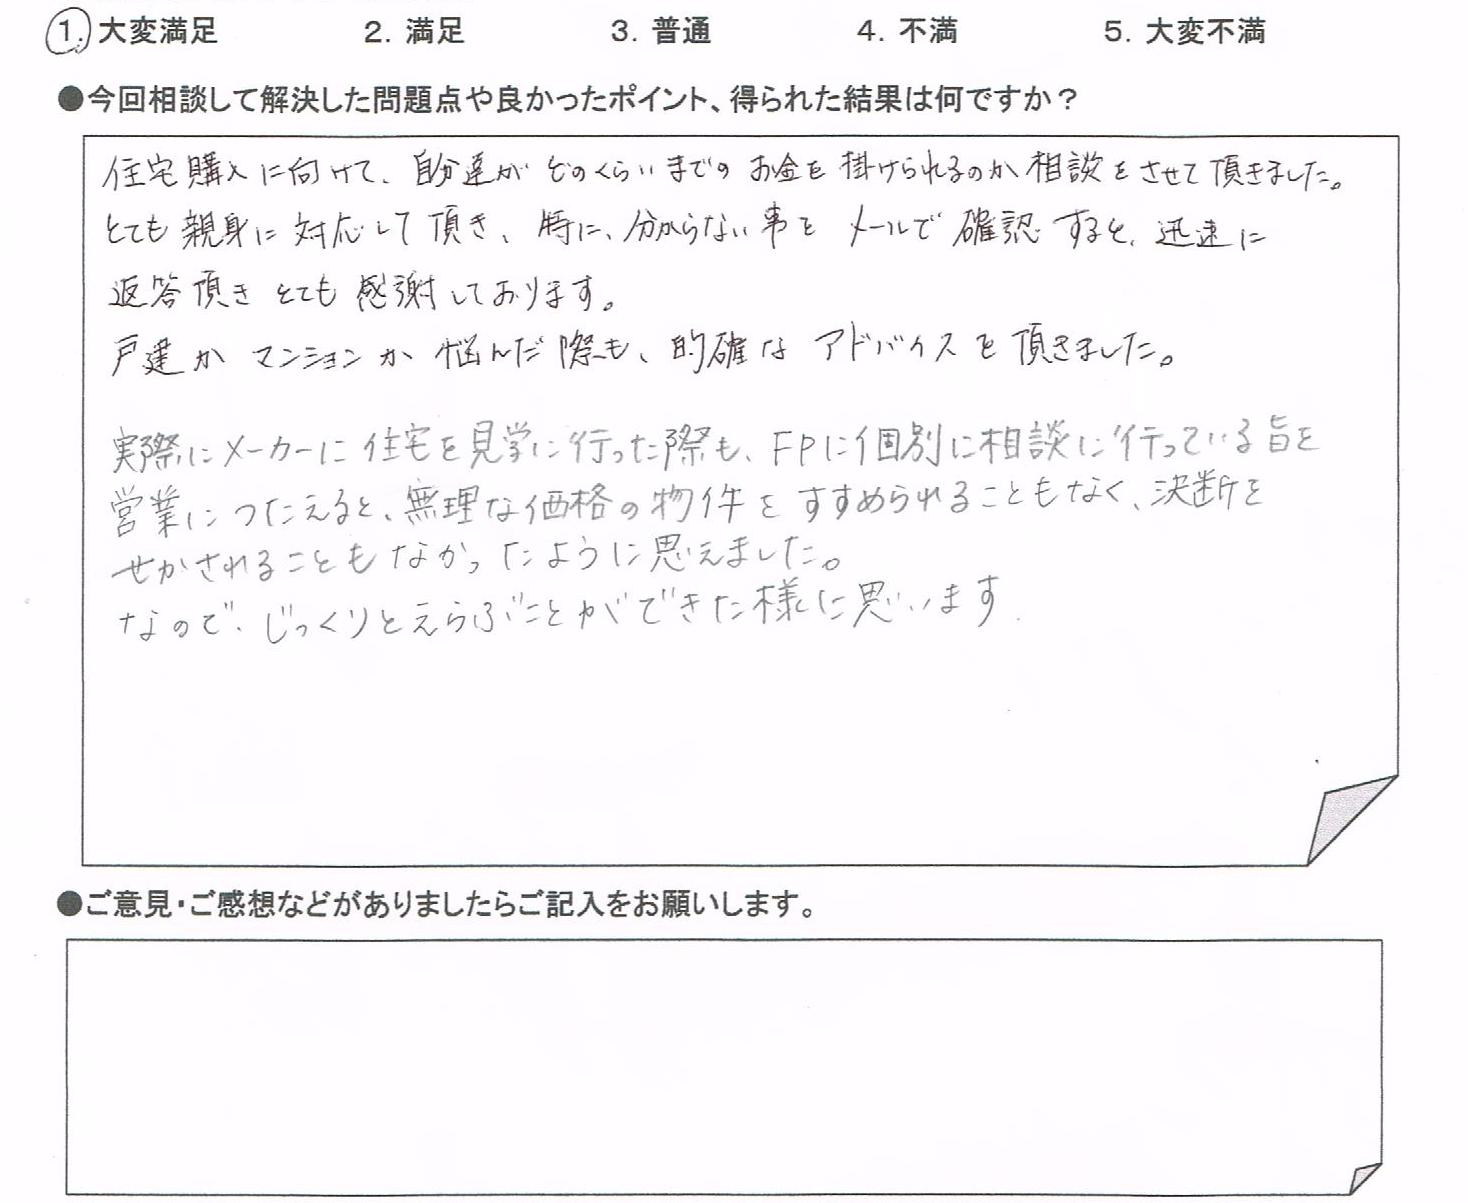 1. 大変満足 2. 満足 3. 普通 4. 不満 5. 大変不満
●今回相談して解決した問題点や良かったポイント、得られた結果は何ですか？
住宅購入に向けて、自分達がどのくらいまでのお金を掛けられるのか相談をさせて頂きました。
とても親身に対応して頂き、特に、分からない事をメールで確認すると、迅速に
返答頂きとても感謝しております。
戸建かマンションか悩んだ際も、的確なアドバイスを頂きました。
実際にメーカーに住宅を見学に行った際も、FPに個別に相談に行っている旨を
営業につたえると、無理な価格の物件をすすめられることもなく、決断を
せかされることもなかったように思えました。
なので、じっくりとえらぶことができた様に思います
●ご意見・ご感想などがありましたらご記入をお願いします。